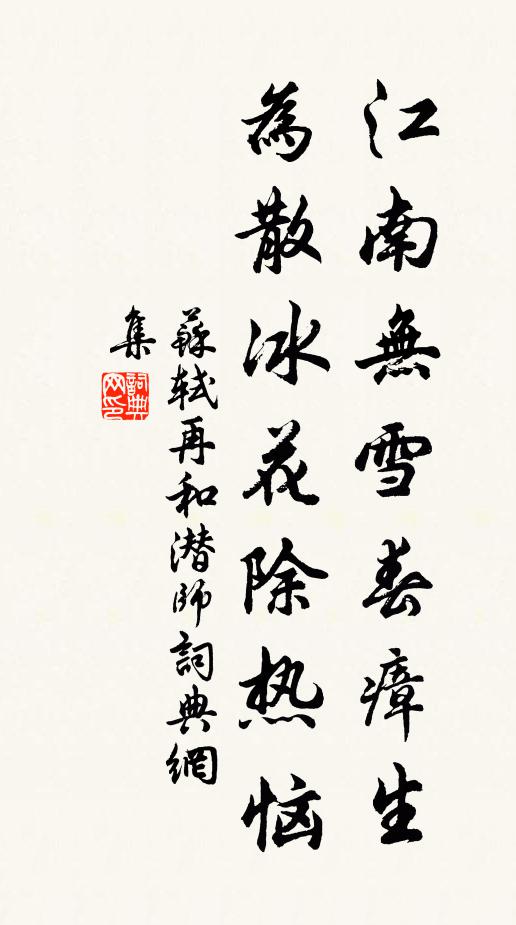 江南無雪春瘴生
為散冰花除热恼
蘇軾再和潜師詞典網
集
詞典网印